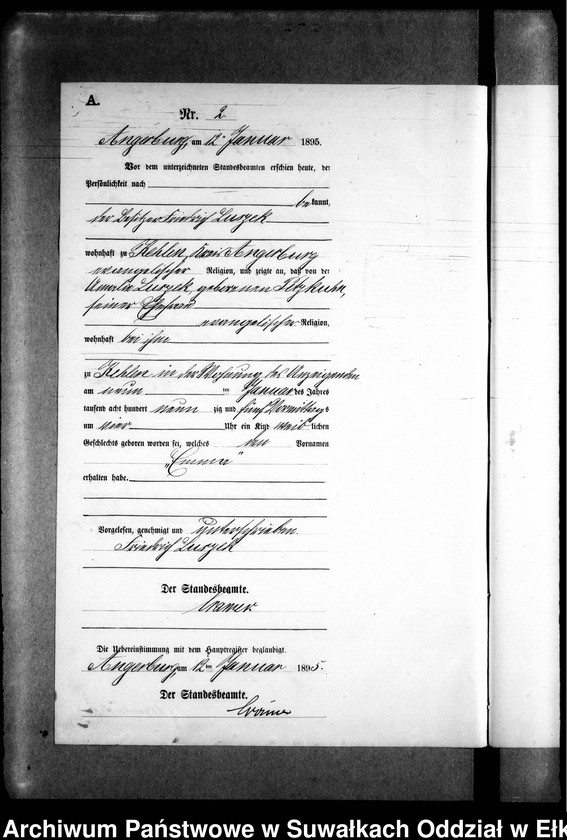 A.
Nr. 2
Angerburg, am 12ten Januar 1895.
Vor dem unterzeichneten Standesbeamten erschien heute, der
Persönlichkeit nach
bekannt,
der Besitzer Friedrich Luszek
wohnhaft zu Kehlen, Kreis Angerburg
evangelischer Religion, und zeigte an, daß von der
Amalie Luszek, geborenen
seiner Ehefrau
evangelischer Religion,
wohnhaft bei ihm
zu Kehlen in der Wohnung des Anzeigenden
am neun ten Januar des Jahres
tausend acht hundert neun zig und fünf Vormittags
um vier Uhr ein Kind weiblichen
Geschlechts geboren worden sei, welches den Vornamen
„Emma"
erhalten habe.
Vorgelesen, genehmigt und unterschrieben
Friedrich Luszek
Der Standesbeamte.
Die Uebereinstimmung mit dem Hauptregister beglaubigt.
Angerburg, am 12ten Januar 1895.
Der Standesbeamte.
Archiwum Państwowe w Suwałkach Oddział w Ełk